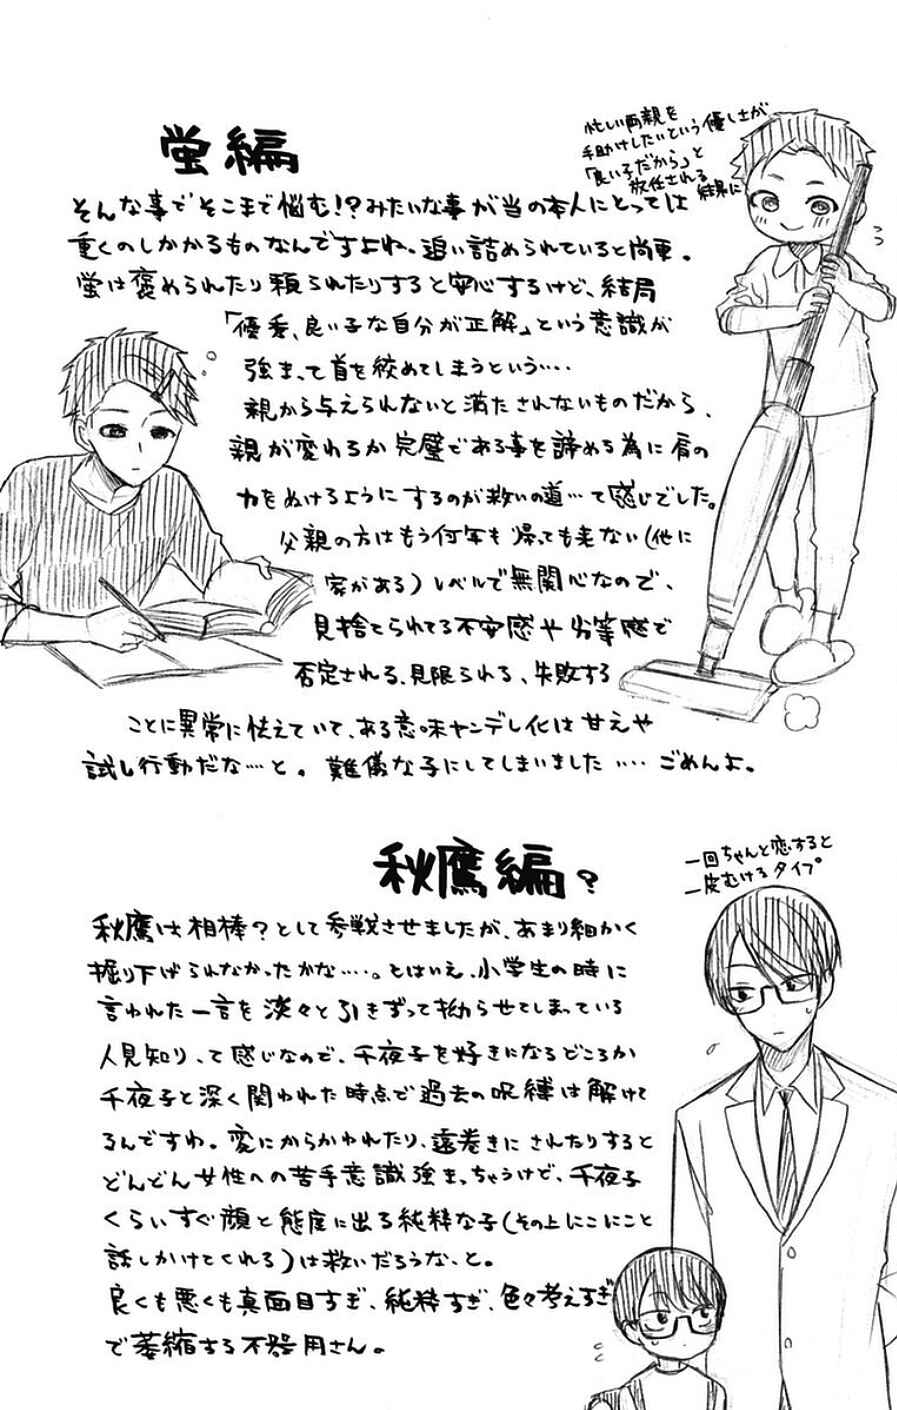 蛍編
忙しい両親を
手助けしたいという優しさが
「良い子だから」と
放任される
結果に
そんな事でそこまで悩む!?みたいな事が当の本人にとっては
重くのしかかるものなんですよね。追い詰められていると尚更。
蛍は褒められたり頼られたりすると安心するけど、結局
「優秀、良い子な自分が正解」という意識が
強まって首を絞めてしまうという‥‥
親から与えられないと満たされないものだから、
親が変わるか完璧である事を諦める為に肩の
力をぬけるようにするのが救いの道…て感じでした。
父親の方はもう何年も帰っても来ない(他に
家がある)レベルで無関心なので、
見捨てられてる不安感や劣等感で
否定される、見限られる、失敗する
ことに異常に怯えていて、ある意味ヤンデレ化は甘えや
試し行動だな…と。難儀な子にしてしまいました‥‥ごめんよ。
秋鷹編?
一回ちゃんと恋すると
一皮むけるタイプ
秋鷹は相棒?として参戦させましたが、あまり細かく
掘り下げられなかったかな‥‥。とはいえ、小学生の時に
言われた一言を淡々と引きずって拗らせてしまっている
人見知りって感じなので、千夜子を好きになるどころか
千夜子と深く関われた時点で過去の呪縛は解けて
るんですわ。変にからかわれたり、遠巻きにされたりすると
どんどん女性への苦手意識強まっちゃうけど、千夜子
くらいすぐ顔と態度に出る純粋な子(その上にこにこと
話しかけてくれる)は救いだろうな、と。
良くも悪くも真面目すぎ、純粋すぎ、色々考えすぎ
で萎縮する不器用さん。